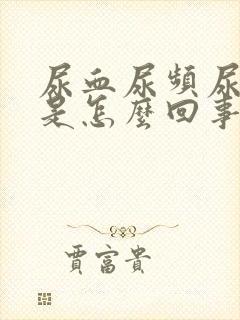 尿血尿頻尿
是怎麼回事
賈富貴